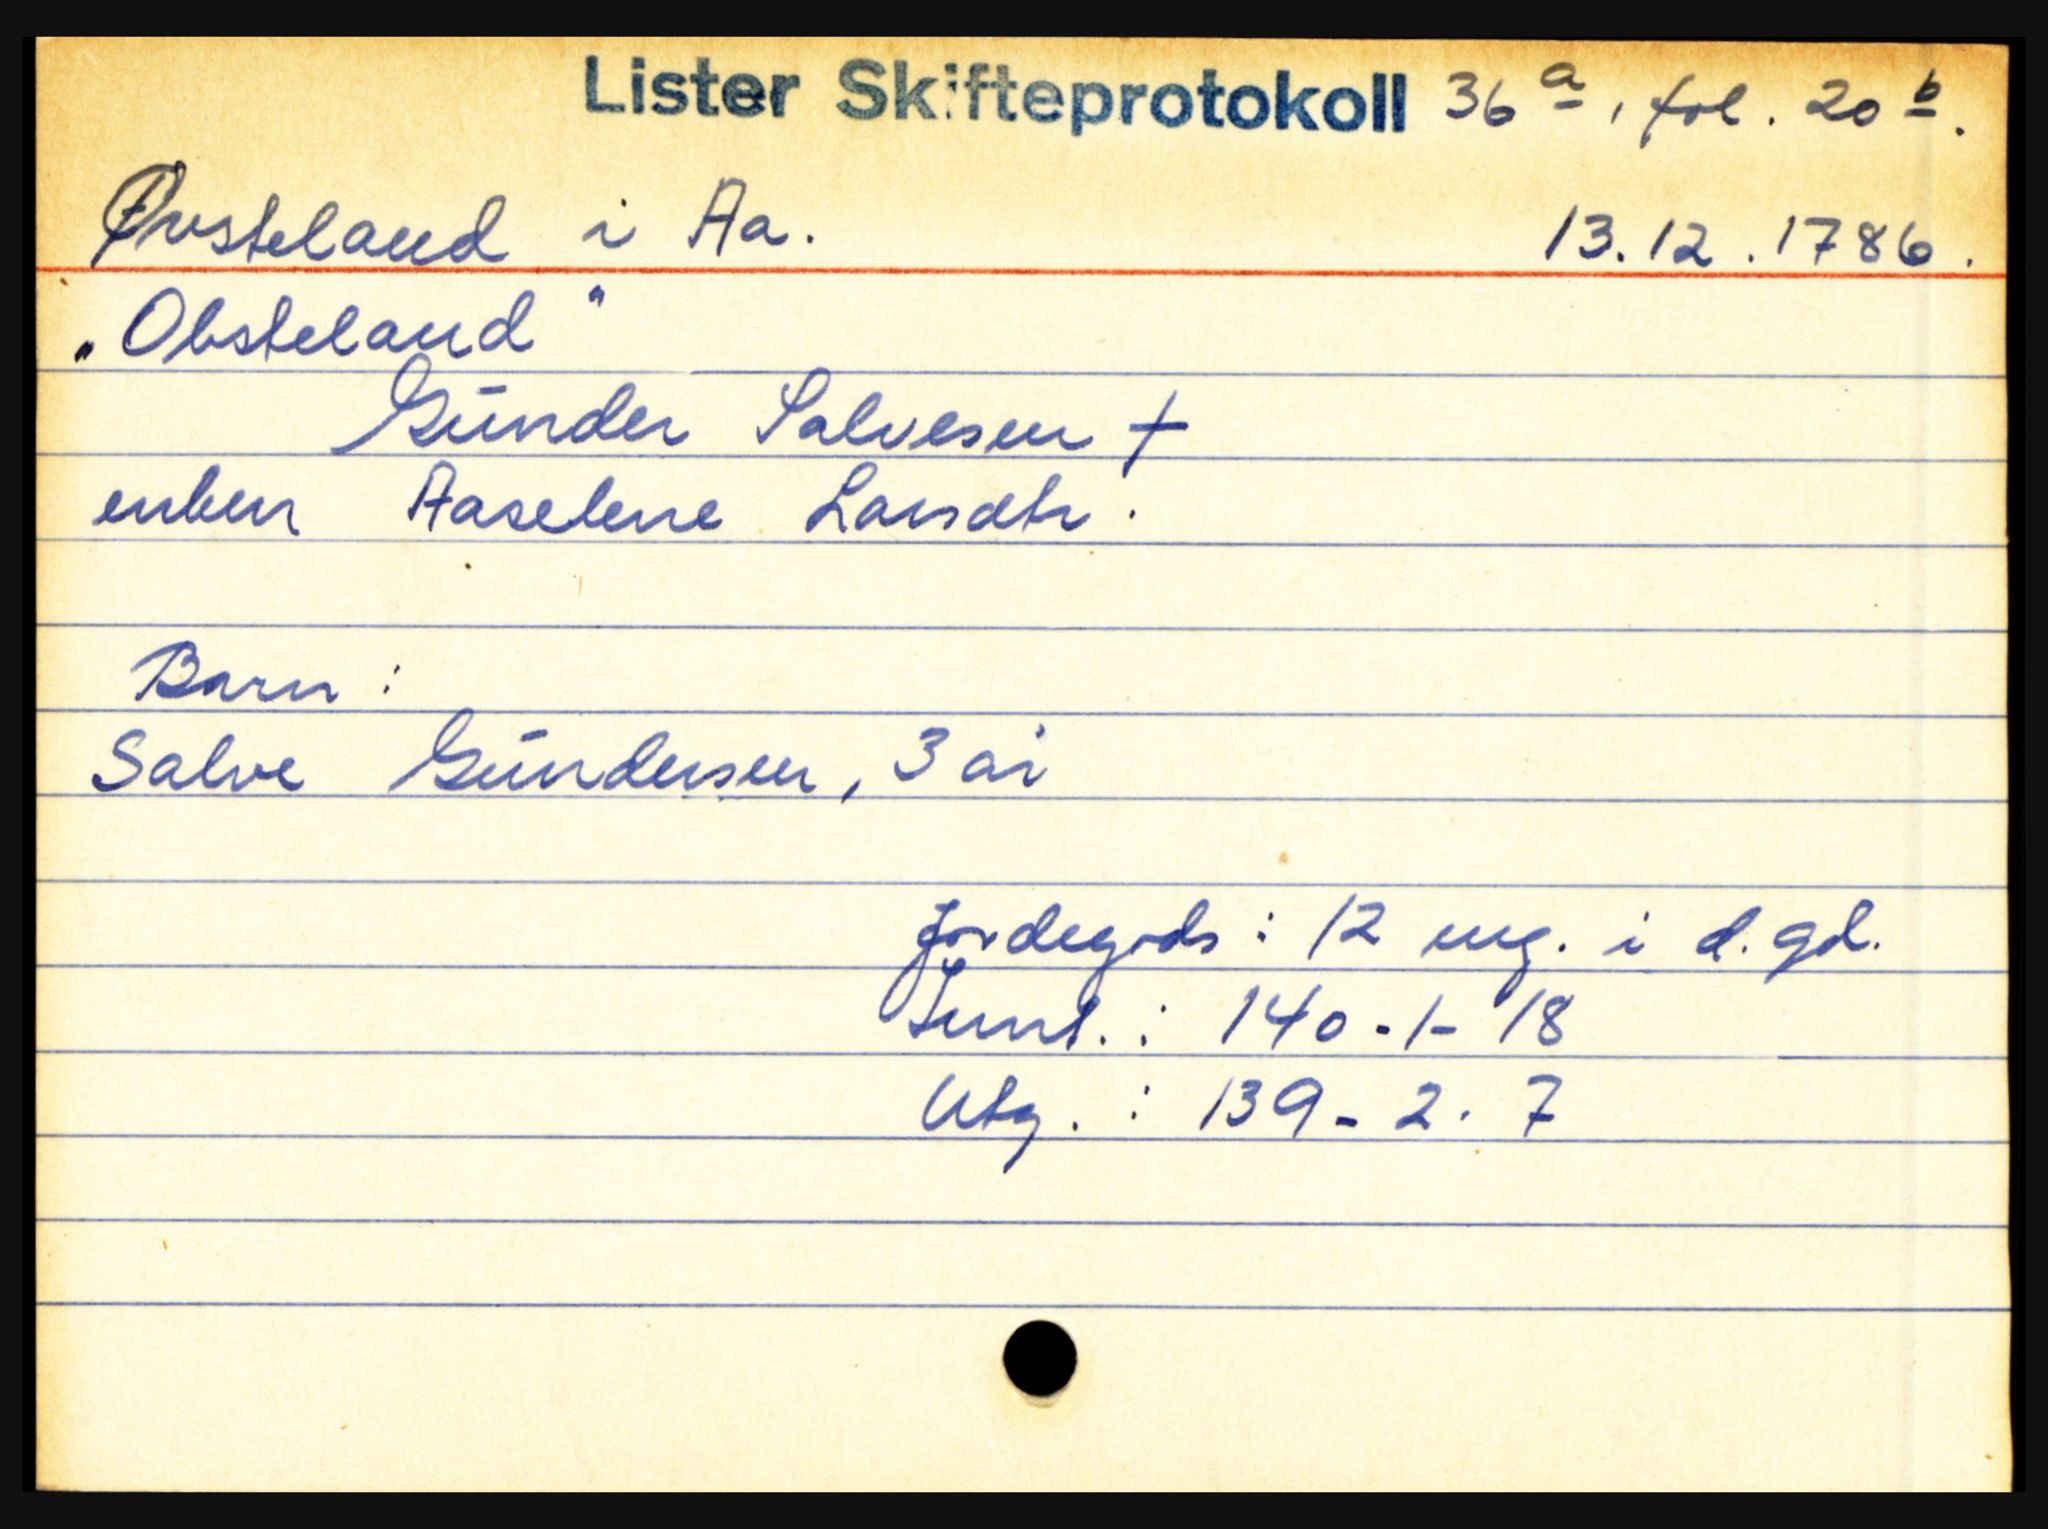 Lister Skifteprotokoll 36 a, fol. 20 b.
Øvsteland i Aa. 13.12.1786.
„Obsteland"
Gunder Salvesen †
enken Aaselene Larsdtr.
Barn:
Salve Gundersen, 3 år
Jordegods: 12 mg. i d. gd.
Innt.: 140-1-18
Utg.: 139-2.7